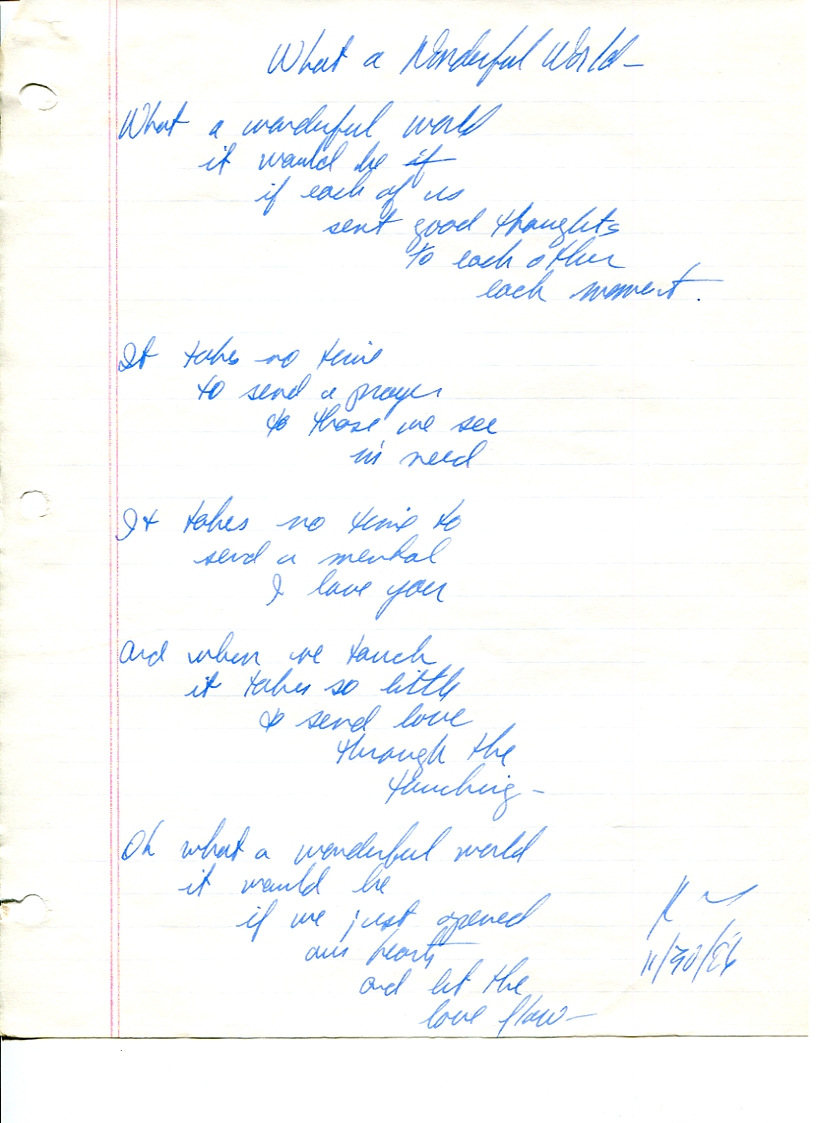 What a Wonderful World –
What a wonderful world
it would be if
if each of us
sent good thoughts
to each other
each moment.
It takes no time
to send a prayer
to those we see
in need
It takes no time to
send a mental
I love you
And when we touch
it takes so little
to send love
through the
touching –
Oh what a wonderful world
it would be
if we just opened
our hearts
and let the
love flow –
11/30/86